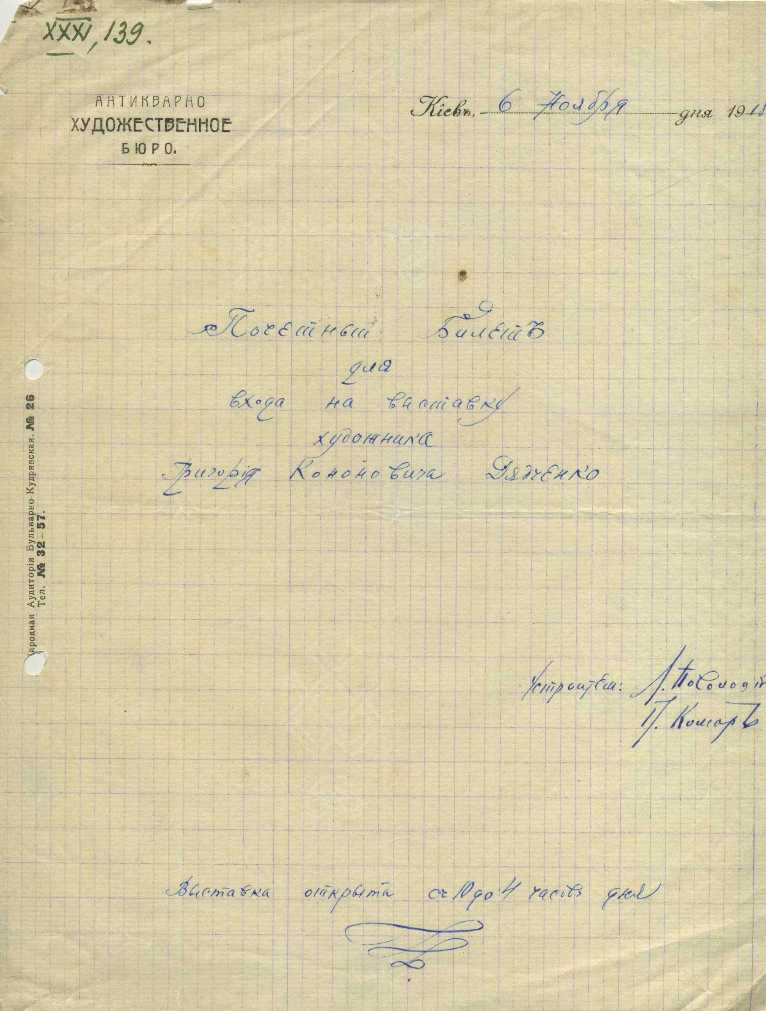 XXXI, 139.
АНТИКВАРНО
ХУДОЖЕСТВЕННОЕ
БЮРО.
Кіевъ, 6 Ноября дня 191
Почетный Билетъ
для
входа на выставку
художника
Григорія Кононовича Дядченко
Народная Аудиторія Бульварно-Кудрявская, № 26
Тел. № 32-57.
Устроители:
П. Комаръ
Выставка открыта съ 10 до 4 часовъ дня